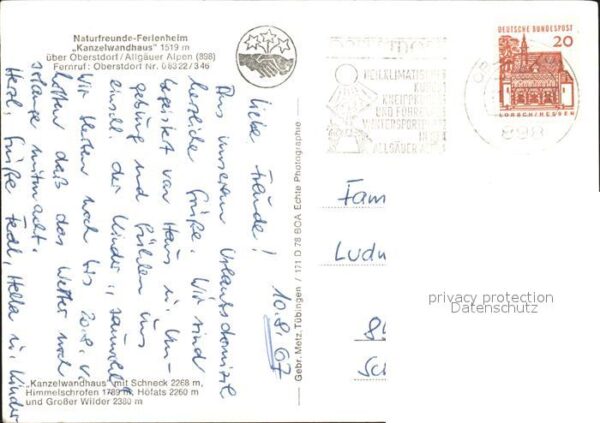 Naturfreunde-Ferienheim
„Kanzelwandhaus" 1519 m
über Oberstdorf/Allgäuer Alpen (898)
Fernruf: Oberstdorf Nr. 08322/346
10.8.67
Liebe Freunde!
Aus unserem Urlaubsdomizil
herzliche Grüße. Wir sind
begeistert von Haus u. Um-
gebung und fühlen uns
einschl. der Kinder „sauwohl".
Wir bleiben noch bis 20.8. u.
hoffen daß das Wetter noch
solange mitmacht.
Herzl. Grüße Ferdl, Hella u. Kinder
„Kanzelwandhaus" mit Schneck 2268 m,
Himmelschrofen 1789 m, Höfats 2260 m
und Großer Wilder 2380 m
Gebr. Metz, Tübingen / 171 D 78 BOA Echte Photographie
HEILKLIMATISCHER
KUR-
KNEIPPKUR-
UND FÜHRENDER
WINTERSPORTPLATZ
IN DEN
ALLGÄUER ALPEN
898
DEUTSCHE BUNDESPOST
20
LORSCH/HESSEN
Fam
Ludw
Sch
privacy protection
Datenschutz